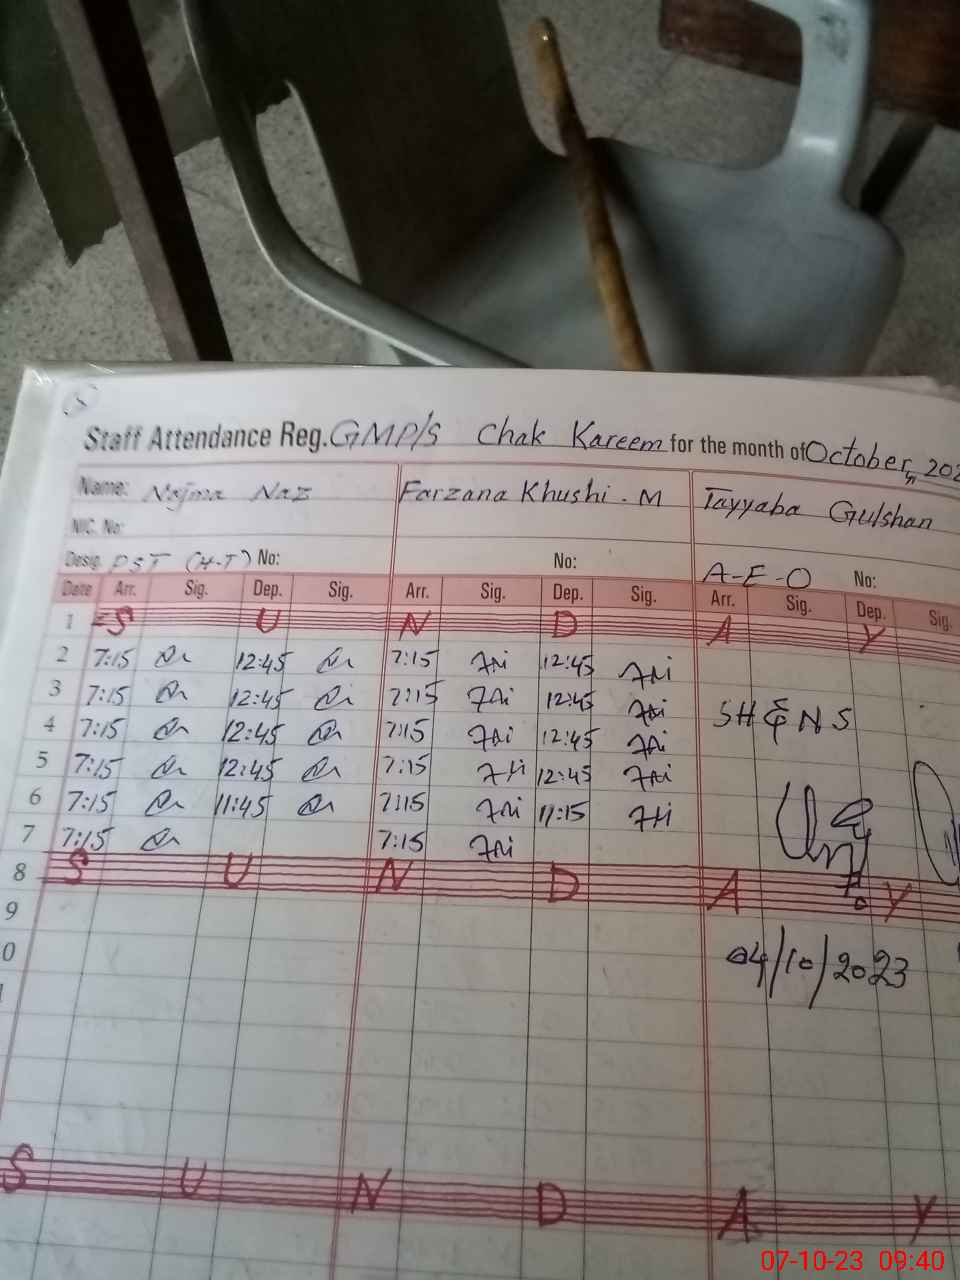 Staff Attendance Reg. GMP/S Chak Kareem for the month of October, 202
Name: Najma Naz Farzana Khushi - M Tayyaba Gulshan
NIC. No:
Desig. PST (H-T) No: No: A-E-O No:
Date Arr. Sig. Dep. Sig. Arr. Sig. Dep. Sig. Arr. Sig. Dep. Sig.
1 S U N D A Y
2 7:15 12:45 7:15 12:45
3 7:15 12:45 7:15 12:45 SH & NS
4 7:15 12:45 7:15 12:45
5 7:15 12:45 7:15 12:45
6 7:15 11:45 7:15 11:15
7 7:15 7:15
8 S U N D A Y
9
0 04/10/2023
S U N D A Y
07-10-23 09:40